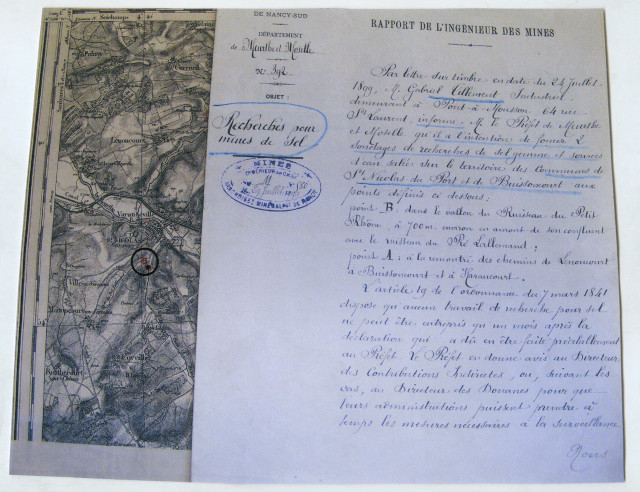 DE NANCY-SUD
DÉPARTEMENT
de Meurthe et Moselle
N° 392
OBJET :
Recherches pour
mines de Sel
MINES
RAPPORT DE L'INGÉNIEUR DES MINES
Par lettre sur timbre en date du 24 Juillet
1899, M. Gabriel Villemont Industriel
demeurant à Pont à Mousson 64 rue
St Laurent informe M. le Préfet de Meurthe
et Moselle qu'il a l'intention de foncer 2
sondages de recherches de sel gemme et sources
d'eau salée sur le territoire des Communes de
St Nicolas du Port et de Buissoncourt aux
points définis ci dessous :
point B, dans le vallon du Ruisseau du Petit
Rhône, à 700m environ en amont de son confluent
avec le ruisseau du Pré Lallemand ;
point A : à la rencontre des chemins de Lenoncourt
à Buissoncourt et à Haraucourt.
L'article 19 de l'ordonnance du 7 mars 1841
dispose qu'aucun travail de recherche pour sel
ne peut être entrepris qu'un mois après la
déclaration qui a dû en être faite préalablement
au Préfet. Le Préfet en donne avis au Directeur
des Contributions Indirectes, ou, suivant les
cas, au Directeur des Douanes pour que
leurs administrations puissent prendre à
temps les mesures nécessaires à la surveillance
Nous
Seichamps
Cerceuil
Lenoncourt
Varangéville
St NICOLAS
Ville
Manoncourt
Coyville
Burthecourt